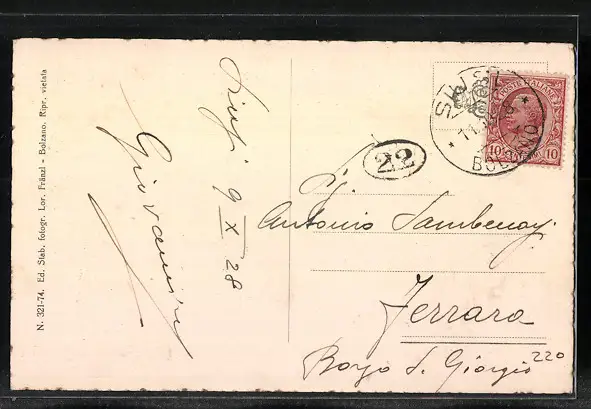 N. 321-74. Ed. Stab. fotogr. Lor. Fränzl - Bolzano. Ripr. vietata
Giovanni
Siusi 9 X 28
POSTE ITALIANE
10 10
SIUSI
BOLZANO
22
Antonio Sambenay
Ferrara
Borgo S. Giorgio 220